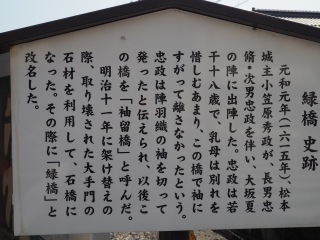 緑橋 史跡
元和元年(一六一五年)松本
城主小笠原秀政が、長男忠
脩・次男忠政を伴い、大坂夏
の陣に出陣した。忠政は若
干十八歳で、乳母は別れを
惜しむあまり、この橋で袖に
すがって離さなかったという。
忠政は陣羽織の袖を切って
発ったと伝えられ、以後こ
の橋を「袖留橋」と呼んだ。
明治十一年に架け替えの
際、取り壊された大手門の
石材を利用して、石橋に
なった。その際に「緑橋」と
改名した。